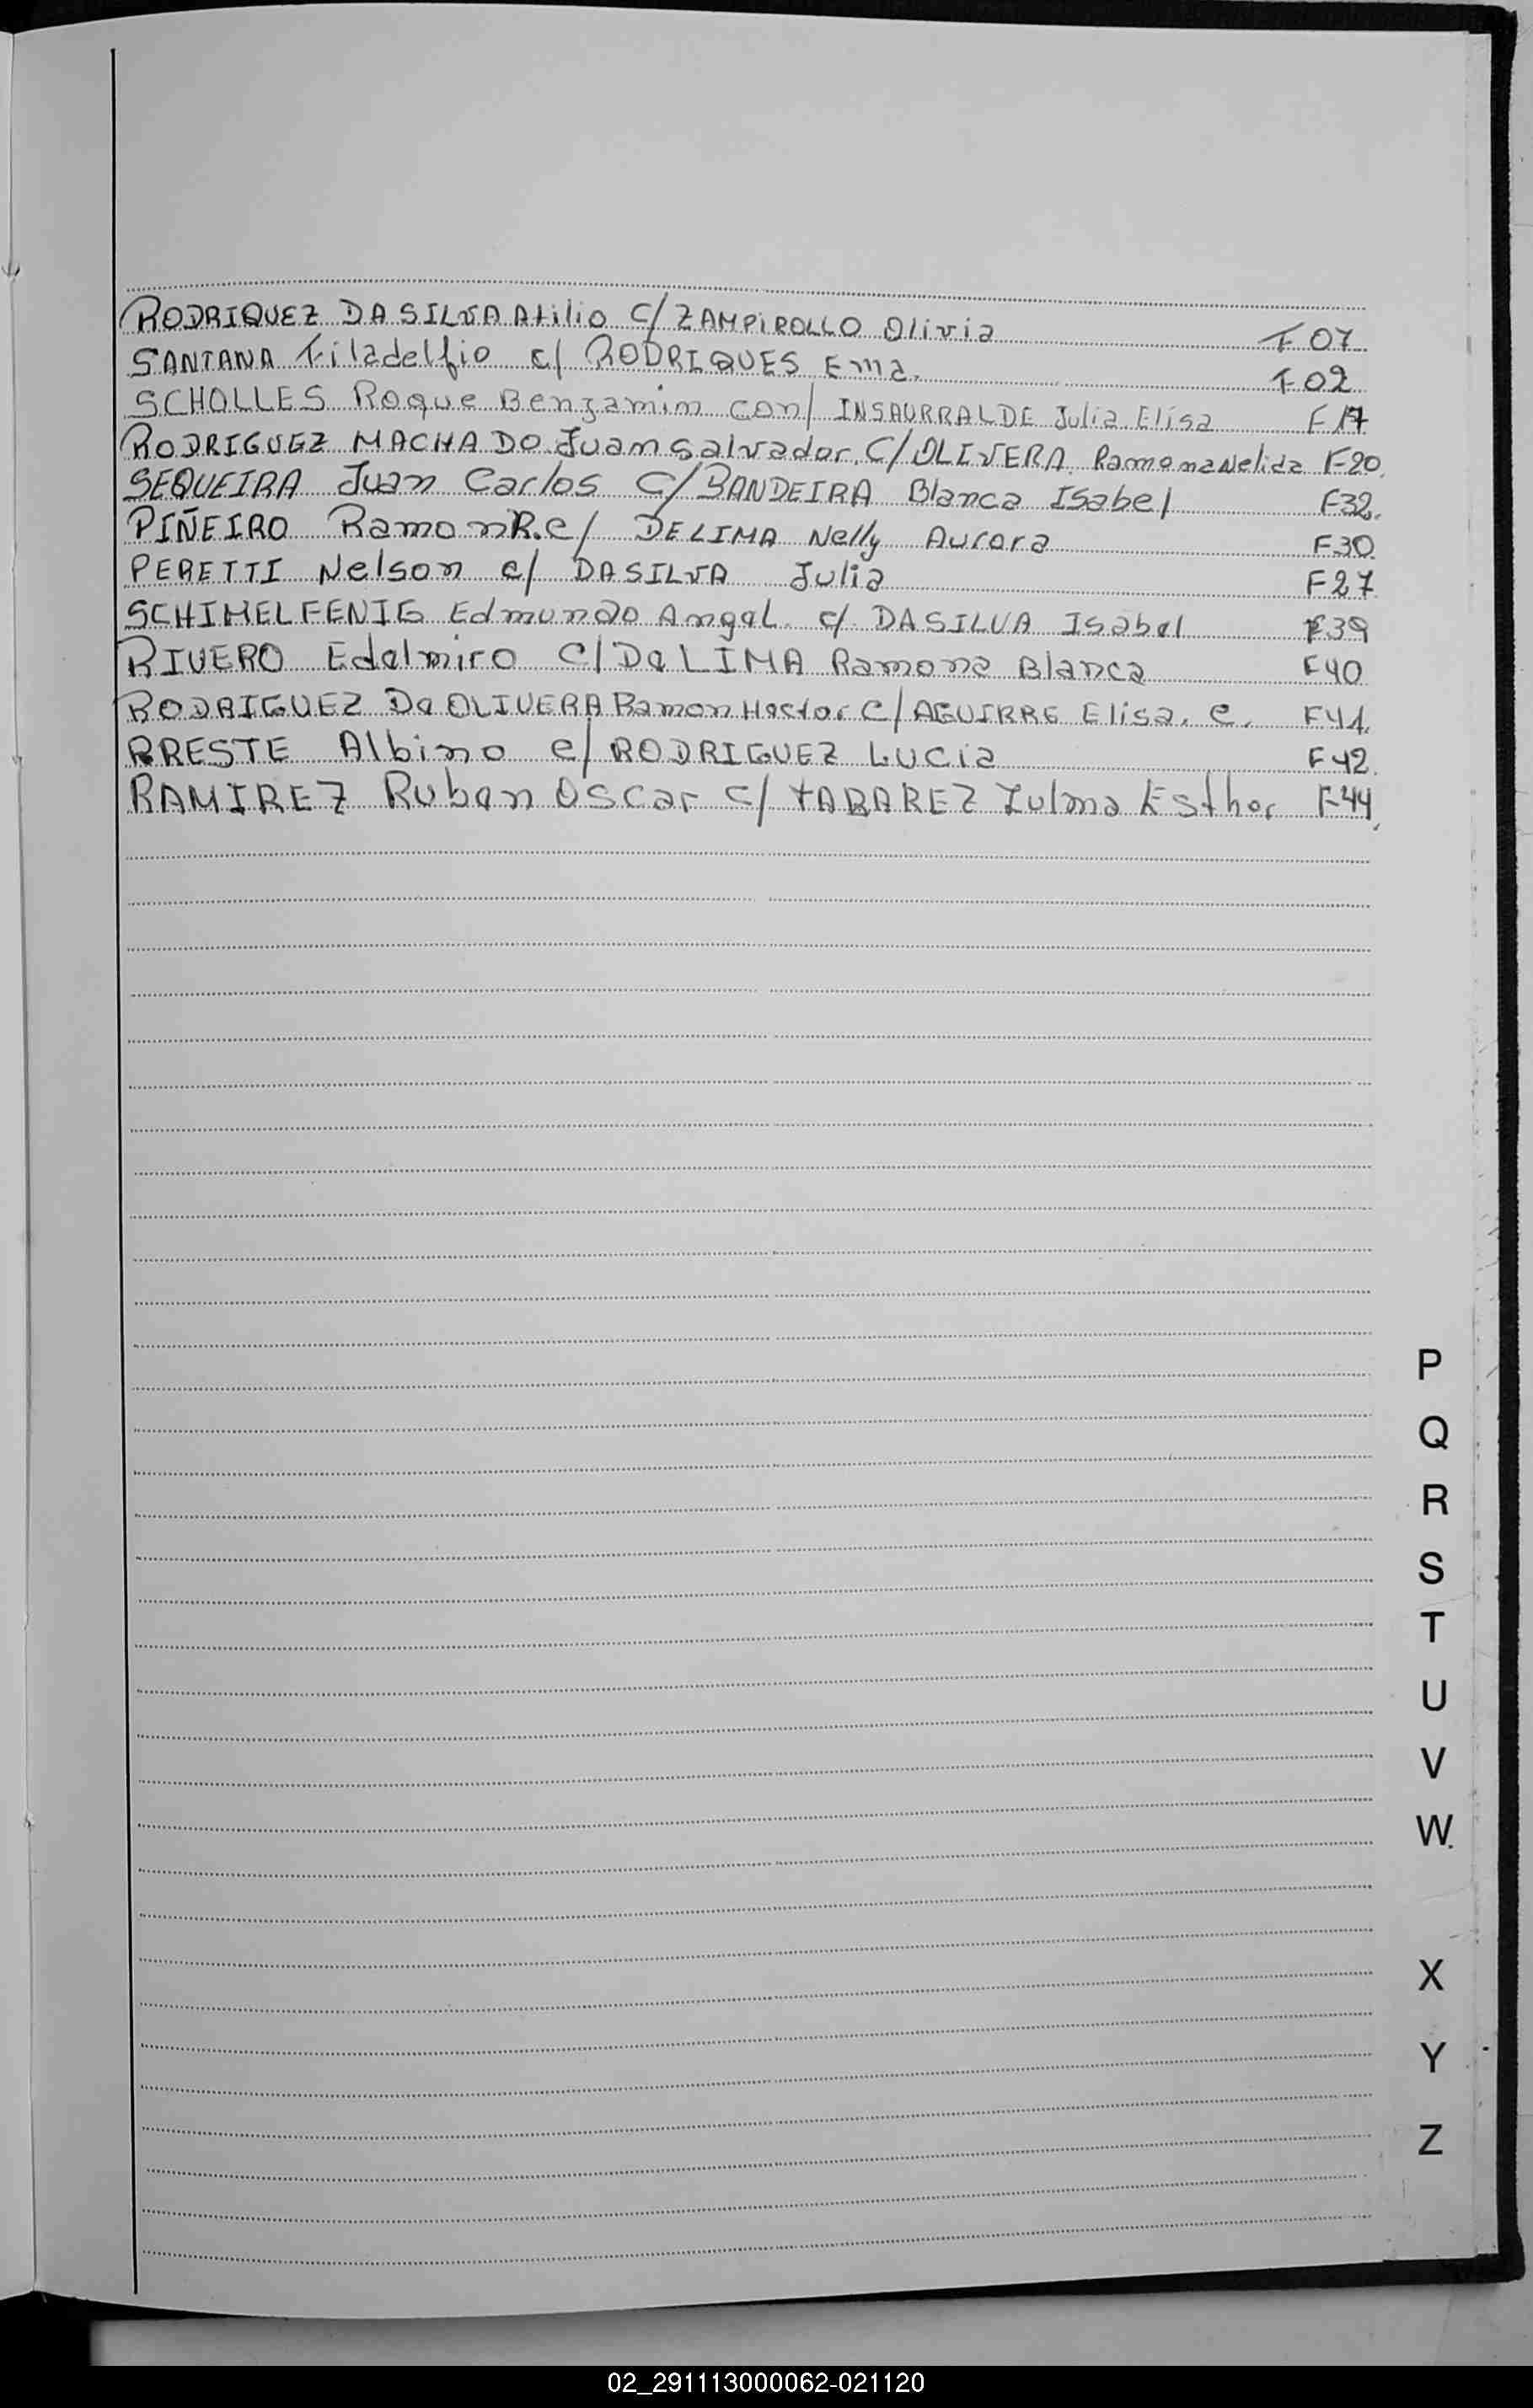 RODRIQUEZ DA SILVA Atilio C/ ZAMPIROLLO Olivia F 07
SANTANA Filadelfio c/ RODRIQUES Ema. F 02
SCHOLLES Roque Benjamim con/ INSAURRALDE Julia Elisa F 17
RODRIGUEZ MACHADO Juam Salvador. C/ OLIVERA Ramona Nelida F-20.
SEQUEIRA Juan Carlos C/ BANDEIRA Blanca Isabel F32.
PIÑEIRO Ramon R. c/ DE LIMA Nelly Aurora F30.
PERETTI Nelson c/ DASILVA Julia F27
SCHIMELFENIG Edmundo Angel. c/ DASILVA Isabel F39
RIVERO Edelmiro C/ De LIMA Ramona Blanca F40
RODRIGUEZ De OLIVERA Ramon Hector C/ AGUIRRE Elisa. e. F41.
PRESTE Albino c/ RODRIGUEZ LUCia F42.
RAMIREZ Ruben Oscar C/ TABAREZ Zulma Esther F-44.
P
Q
R
S
T
U
V
W.
X
Y
Z
02_291113000062-021120